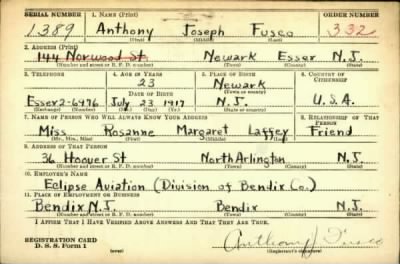 SERIAL NUMBER 1. NAME (Print) ORDER NUMBER
1389 Anthony Joseph Fusco 332
(First) (Middle) (Last)
2. ADDRESS (Print)
144 Norwood St. Newark Essex N.J.
(Number and street or R. F. D. number) (Town) (County) (State)
3. TELEPHONE 4. AGE IN YEARS 5. PLACE OF BIRTH 6. COUNTRY OF CITIZENSHIP
23 Newark
DATE OF BIRTH (Town or county)
Essex 2-6496 July 23 1917 N.J. U.S.A.
(Exchange) (Number) (Mo.) (Day) (Yr.) (State or country)
7. NAME OF PERSON WHO WILL ALWAYS KNOW YOUR ADDRESS 8. RELATIONSHIP OF THAT PERSON
Miss Rosanne Margaret Laffey Friend
(Mr., Mrs., Miss) (First) (Middle) (Last)
9. ADDRESS OF THAT PERSON
36 Hoover St North Arlington N.J.
(Number and street or R. F. D. number) (Town) (County) (State)
10. EMPLOYER'S NAME
Eclipse Aviation (Division of Bendix Co.)
11. PLACE OF EMPLOYMENT OR BUSINESS
Bendix N.J. Bendix N.J.
(Number and street or R. F. D. number) (Town) (County) (State)
I AFFIRM THAT I HAVE VERIFIED ABOVE ANSWERS AND THAT THEY ARE TRUE.
REGISTRATION CARD
D. S. S. Form 1 (over) Anthony J Fusco
(Registrant's signature)